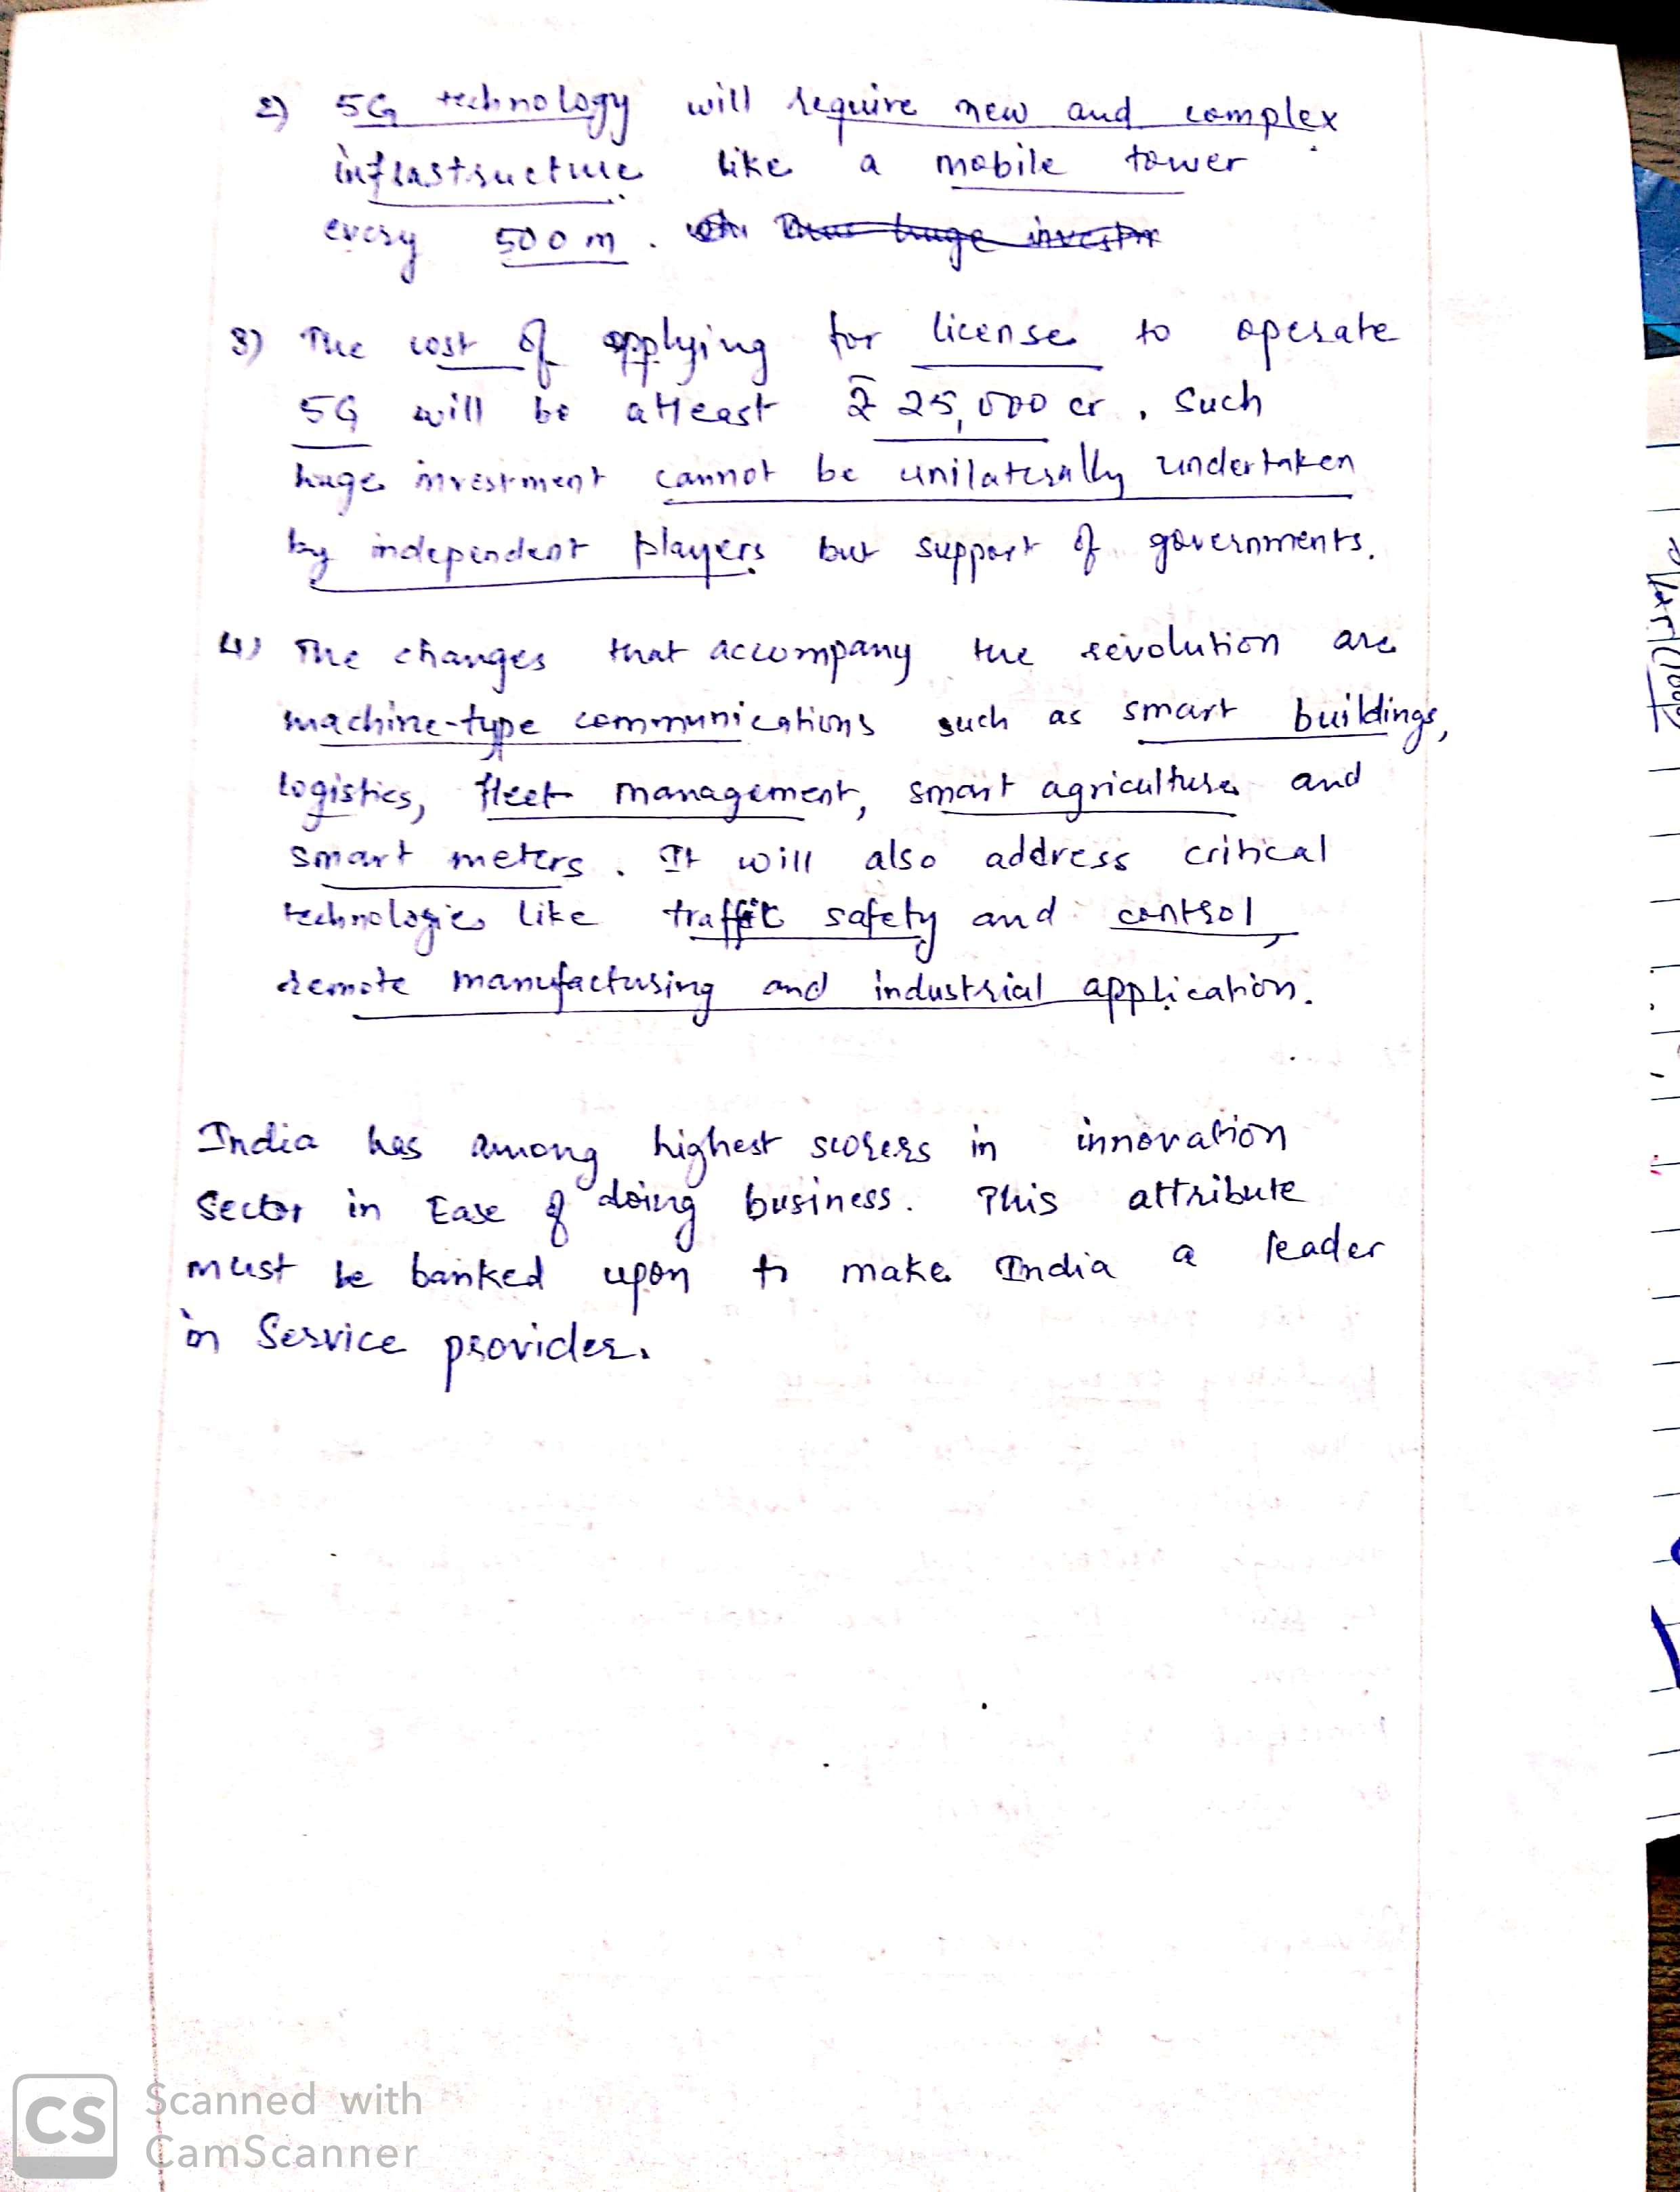 2) 5G technology will require new and complex
infrastructure like a mobile tower
every 500 m. huge
3) The cost of applying for license to operate
5G will be atleast ₹ 25,000 cr. Such
huge investment cannot be unilaterally undertaken
by independent players but support of governments.
4) The changes that accompany the revolution are
machine-type communications such as smart buildings,
logistics, fleet management, smart agriculture and
smart meters. It will also address critical
technologies like traffic safety and control,
remote manufacturing and industrial application.
India has among highest scorers in innovation
sector in Ease of doing business. This attribute
must be banked upon to make India a leader
in Service provider.
CS Scanned with
CamScanner